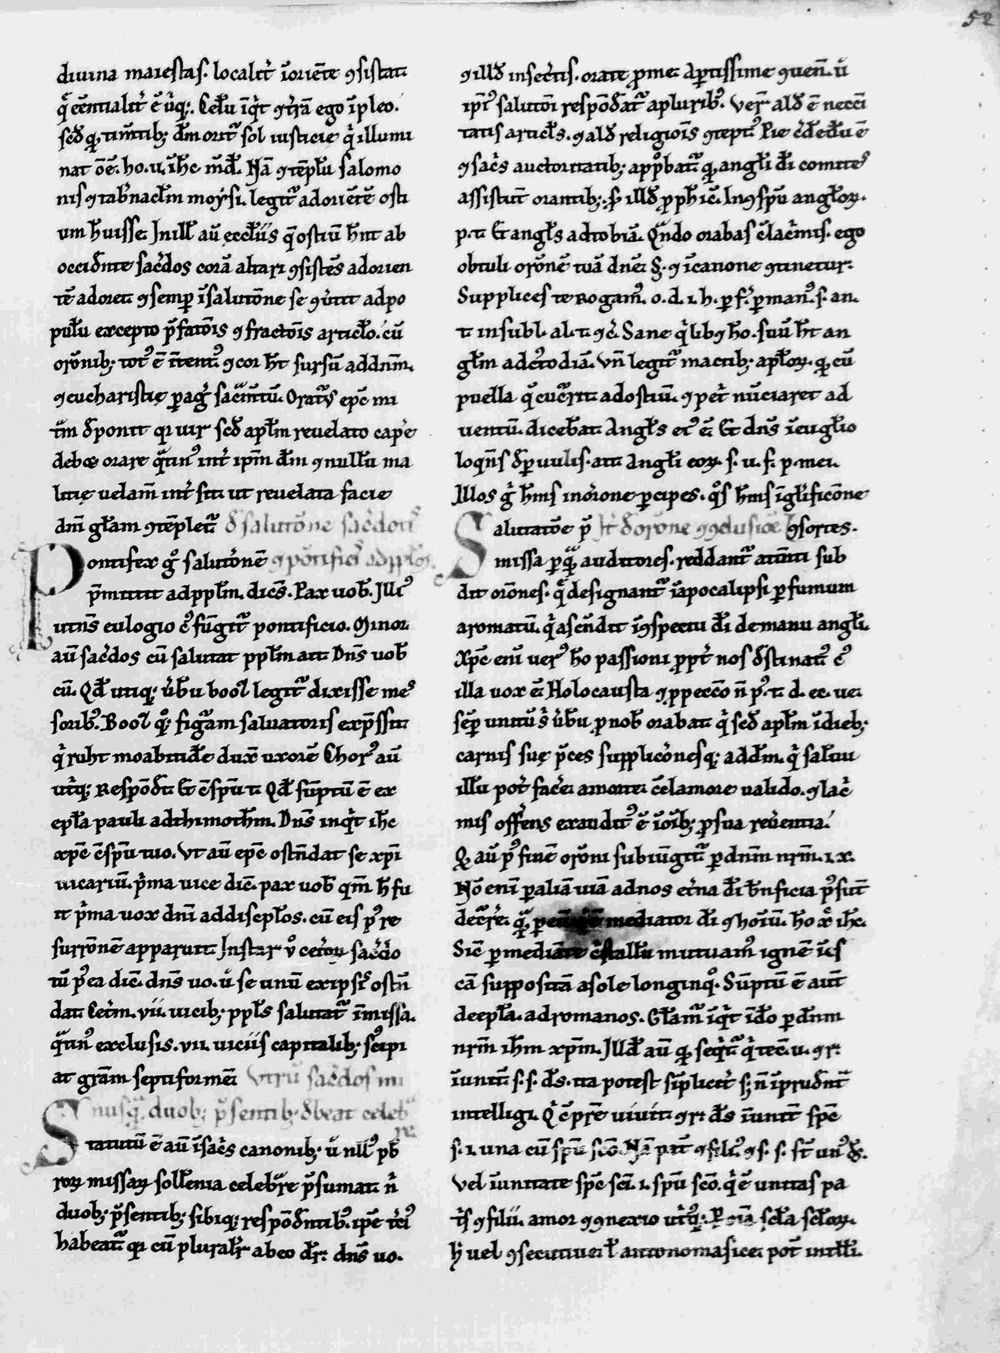 52
diuina maiestas. localit̄ īoriēte ꝯsistat
q̄ eēntialit̄ ē ub̄iq;. Celū īqt̄ ⁊ t̄rā ego īpleo.
sed q; tim̄tib; dm̄ orit᷑ sol iusticie q̇ illumi
nat oēm ho. u. ih̄c m̄d. Nā ⁊ tēplū salomo
nis ⁊ tab̄nacl̄m moysi. legit᷑ ad oriētē osti
um h̄uisse. In ill̄ aū eccl̄iis q̄ ostiū h̄nt ab
occid̄nte sac̄dos corā altari ꝯsistēs ad orien
tē
pulū excepto p̄fatōis ⁊ fractōis articl̄o. cū
orōnib; tot᷑ ē ītent᷑ ⁊ cor h̄t sursū ad dn̄m.
⁊ eucharistie ꝑaḡ sac̄m̄tū. Oratur᷑ ep̄c mi
t̄m d̄ponit qr uir sed apl̄m reuelato cap̄e
debet orare q̄tin᷑ int̄ ip̄m dm̄ ⁊ nullū ma
litie uelam̄ int̄ sit ut reuelata facie
dn̄i gl̄am ꝯtēplet᷑ d̄ salutōne sac̄dotis
Pontifex g° salutōnē ⁊ pōtificis ad ppl̄os
p̄mittit ad ppl̄m. dicēs. Pax uob̄. Illi᷑
utēns eulogio c᷑ fūgit᷑ pontificio. Minor
aū sac̄dos cū salutat ppl̄m ait Dn̄s uob̄
cū. Qd̄ utiq; ūbū booz legit᷑ dixisse mes
sorib᷑. Booz q; figām saluatoris exp̄ssit
q̇ ruht moabitidē dux̄ uxorē Chor᷑ aū
utiq; Respōd̄t. Et cū sp̄u t. Qd̄ sūptū ē ex
epl̄a pauli ad thimothm̄. Dn̄s inqt̄ ih̄c
xp̄c cū sp̄u tuo. Vt aū ep̄c ostēndat se xp̄i
uicariū. p̄ma uice dic̄. pax uob̄ qm̄ h̄ fu
it p̄ma uox dn̄i ad discipl̄os. cū eis p᷑ re
surrōnē apparuit. Instar u° cet̄oꝝ sac̄do
tū p᷑ea dic̄. dn̄s uo. ū se unū ex ip̄s᷑ ostēn
dat. Cet̄m. vii. uicib; ppl̄s salutat᷑ ī missa.
q̄tin᷑ exclusis. vii. uiciis capitalib; sc̄ipi
at gr̄am septiformē. Vtrū sac̄dos mi
nusq̄ duob; p̄sentib; d̄beat celeb
re
Statutū ē aū ī sac̄s canonib; ū nll᷑ p̄b
roꝝ missaꝝ soll̄enia celeb̄re p̄sumat n̄
duob; p̄sentib; sibiq; respōd̄ntib᷑. ip̄e t̄ci᷑
habeat᷑ qr cū plural̄r ab eo dr̄: dn̄s uo.
⁊ illd̄ in sec̄tis. orate ꝓ me. Aptissime ꝯuen̄. ū
ip̄i᷑ salutōi respōd̄at᷑ a plurib᷑. Ver̄ ald̄ ē neccī
tatis articl̄s. ⁊ ald̄ religiōis ꝯtept᷑ Pie c̄dēdū ē
⁊ sac̄s auctoritatib; app̄bat᷑ q; angl̄i d̄i comites
assistūt orantib;. s̄ illd̄ ꝓph̄ic̄. In ꝯsp̄u angl̄oꝝ.
p. t. Et angl̄s ad tobiā. Qn̄do orabas c̄ lac̄mis. ego
obtuli orōnē tuā dn̄o. ⁊ ī canone ꝯtinetur.
Supplices te Rogam᷑. o. d. i. h. ꝑf. ꝑ man᷑. s. an.
t. in subl. al. t. ⁊c̄. Sane q̇lib; h̄o. suū h̄t an
gl̄m ad c᷑todiā. Vn̄ legit᷑ in actib; apl̄oꝝ. q; cū
puella q̄ cuc̄rit ad ostiū. ⁊ pet̄ nūciaret ad
uentū. diceb̄at. Angl̄s ei᷑ ē. Et dn̄s ī eugl̄io
loqēns d̄ ꝑuulis. ait angl̄i eoꝝ. s. u. f. p. mei.
Illos g° h̄ms in orōne ꝑcipes. q°s h̄ms ī gl̄ificōne
Salutatōe p̄ It̄ d̄ orōne ⁊ ꝯclusiōe ꝯsortes.
missa p᷑q̄ auditores. reddant᷑ att̄nti sub
dit orōnes. q̄ designant᷑ ī apocalipsi ꝑ fumum
aromatū. q̇ ascēndit ī ꝯspectu d̄i de manu angl̄i.
Xp̄c eni uer᷑ h̄o passioni ꝓpt̄ nos d̄stinat᷑ c᷑
illa uox ē. Holocausta ⁊ ꝓ pecc̄o n̄ p. t. d. ec. ue.
sēꝑ unitū s᷑ ūbū ꝓ nob̄ orabat q̇ sed apl̄m ī dieb;
carnis sue p̄ces supplicōnesq; ad dm̄. q̇ saluū
illū pot̄ fac̄e a morte. c̄ clamore ualido. ⁊ lac̄
mis offēns exaudit᷑ ē ī oīb; ꝓ sua reuēntia.
Q. aū p᷑ finē orōni subiūgit᷑ ꝑ dn̄m nr̄m. i. x.
Nō eni ꝑ aliā uiā ad nos et̄na d̄i b̄nficia p᷑sūt
mediator d̄i ⁊ hoīū. h̄o x̄c ih̄c.
Sic̄ ꝑ mediāte c̄stallū mutuam᷑ ignē ī es
cā suppositā a sole longinq°. Sūptū ē aūt
de epl̄a. ad romanos. Gl̄am īqt̄ īd̄o ꝑ dn̄m
nr̄m ih̄m xp̄m. Illd̄ aū q; seqt᷑ q̇ tec̄. u. ⁊ r:
ī unit. s. s. d̄s. ita potest sīplicit̄ s; n̄ īprud̄nt᷑
intelligi. Q̇ c̄ p̄re uiuit. ⁊ r: d̄s ī unit̄ sp̄c
s. i. una cū sp̄u sc̄o. Nā pat᷑ ⁊ fili᷑. ⁊ s. s. st̄ un᷑ d̄s.
Vel ī unitate sp̄c sc̄i. i. sp̄u sc̄o. q̇ ē unitas pa
t̄s ⁊ filii. amor ⁊ ꝯnexio utiq;. sc̄la sc̄loꝝ.
h̄ uel ꝯsecutiue. ł antonomasice. pot᷑ intelli.